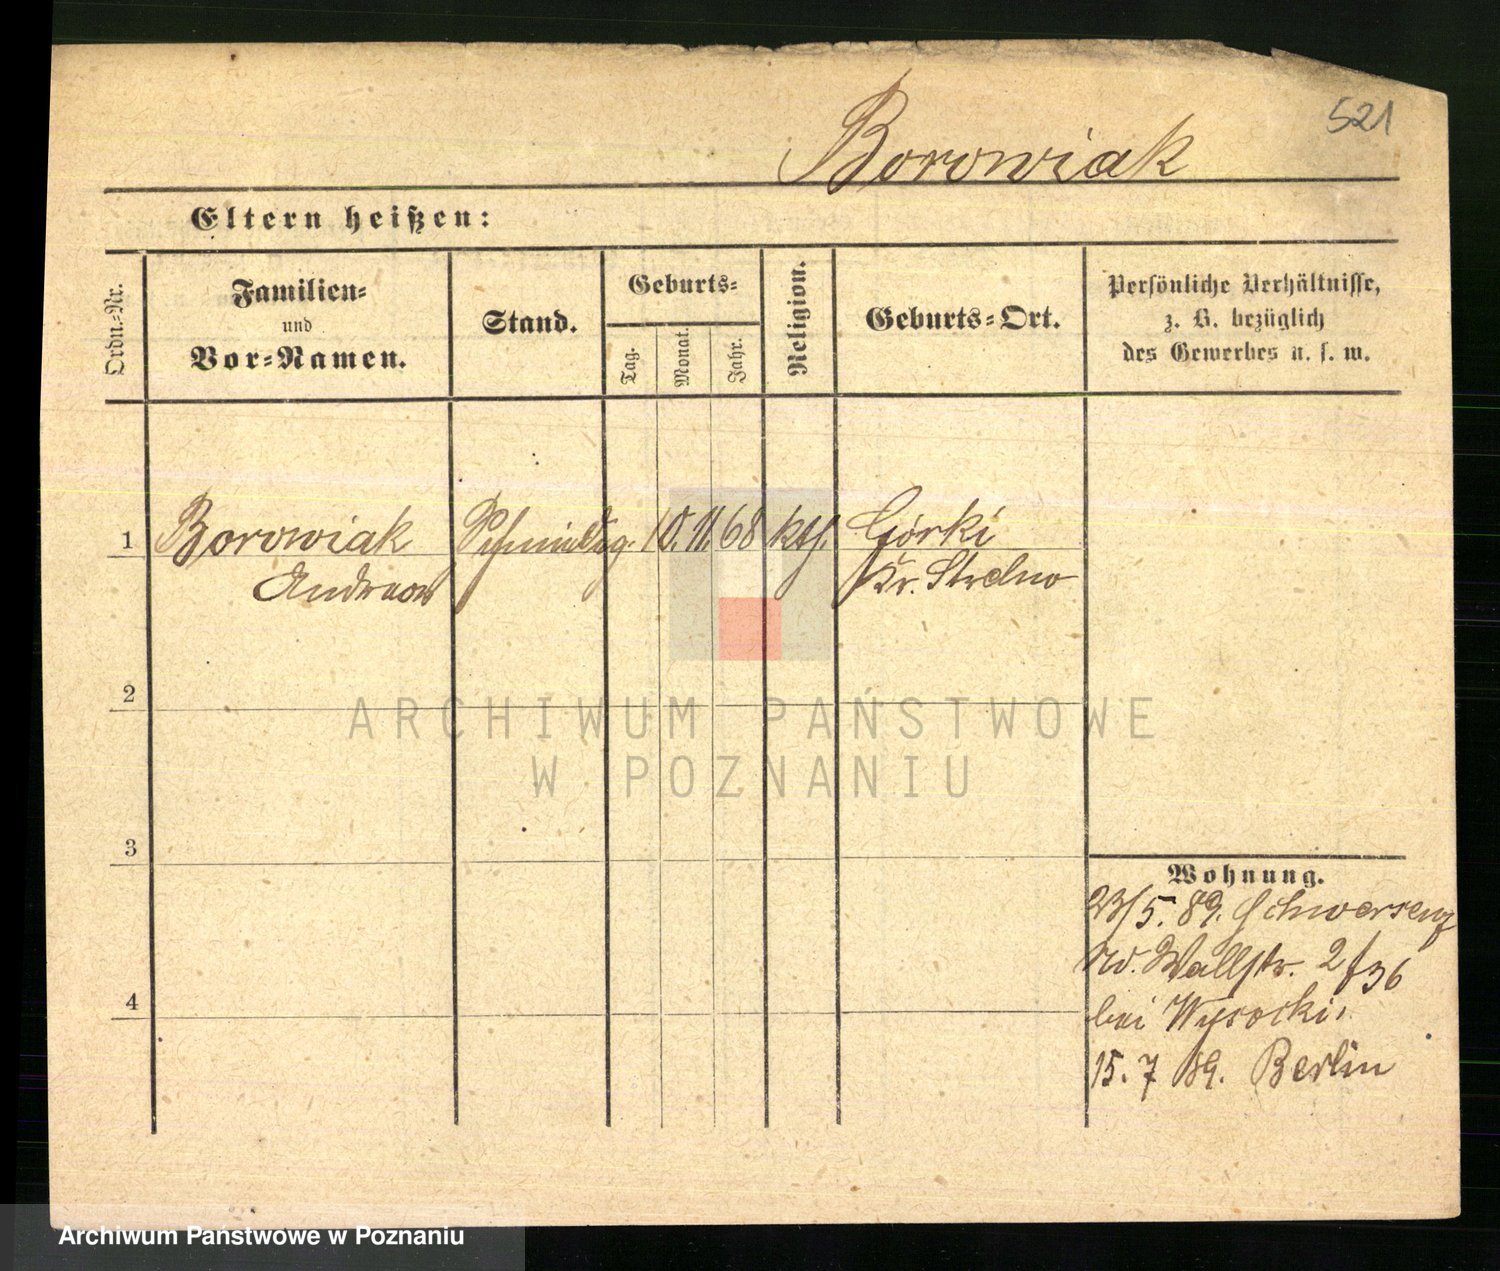 521
Borowiak
Eltern heißen:
Ordn.-Nr.
Familien-
und
Vor-Namen.
Stand.
Geburts-
Tag.
Monat.
Jahr.
Religion.
Geburts-Ort.
Persönliche Verhältnisse,
z. B. bezüglich
des Gewerbes u. s. w.
1 Borowiak Schmiedeg. 10. 11. 68 kth. Górki
Andreas Kr. Strelno
2
3
4
Wohnung.
23/5. 89. Schwersenz
Wallstr. 2
bei Wysocki,
15. 7 89. Berlin
ARCHIWUM PAŃSTWOWE
W POZNANIU
Archiwum Państwowe w Poznaniu